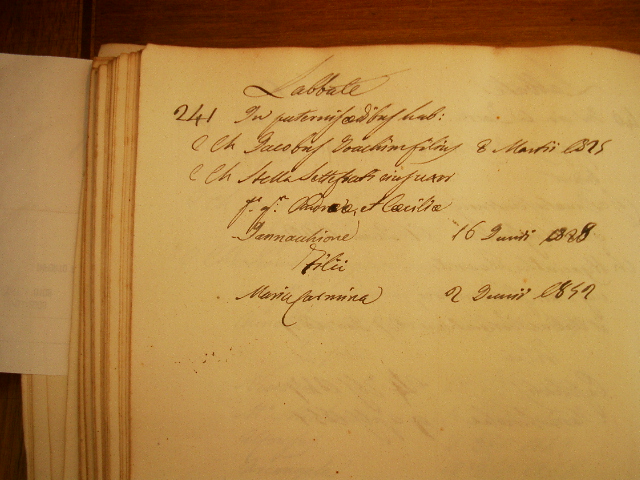 Labbate
241 In paternis ædibus hab:
C Ch Jacobus Joachim filius 8 Martii 1825
C Ch Stella Settefrati ejus uxor
f. q. Andreæ, et Cæciliæ
Iannacchione 16 Junii 1828
Filii
Maria Carmina 2 Junii 1852